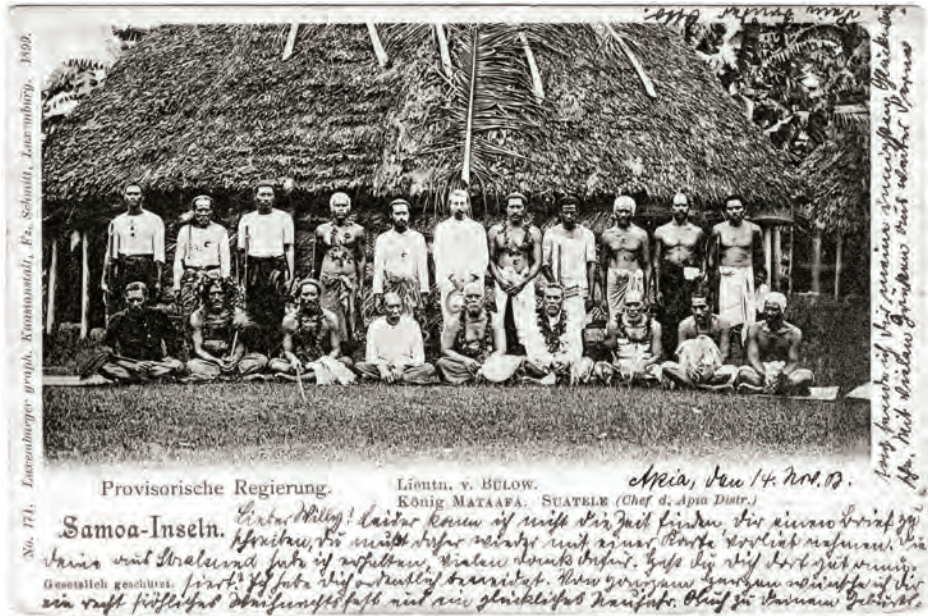 No. 171. Luxemburger graph. Kunstanstalt, Fz. Schmitt, Luxemburg. 1899.
Provisorische Regierung.
Lieutn. v. BÜLOW.
König MATAAFA. SUATELE (Chef d. Apia Distr.)
Apia, den 14. Nov. 03.
Samoa-Inseln.
Gesetzlich geschützt.
Lieber Willy! Leider kann ich nicht die Zeit finden, Dir einen Brief zu
schreiben, Du mußt daher wieder mit einer Karte vorlieb nehmen. Die
deine aus Stralsund habe ich erhalten, vielen Dank dafür. Hast du dich dort gut
Ich habe dich ordentlich beneidet. Von ganzem Herzen wünsche ich Dir
ein recht fröhliches Weihnachtsfest und ein glückliches Neujahr. Auch zu Deinem Geburts-
tag sende ich Dir meine
Mit vielen Grüßen aus weiter Ferne
Dein Otto.